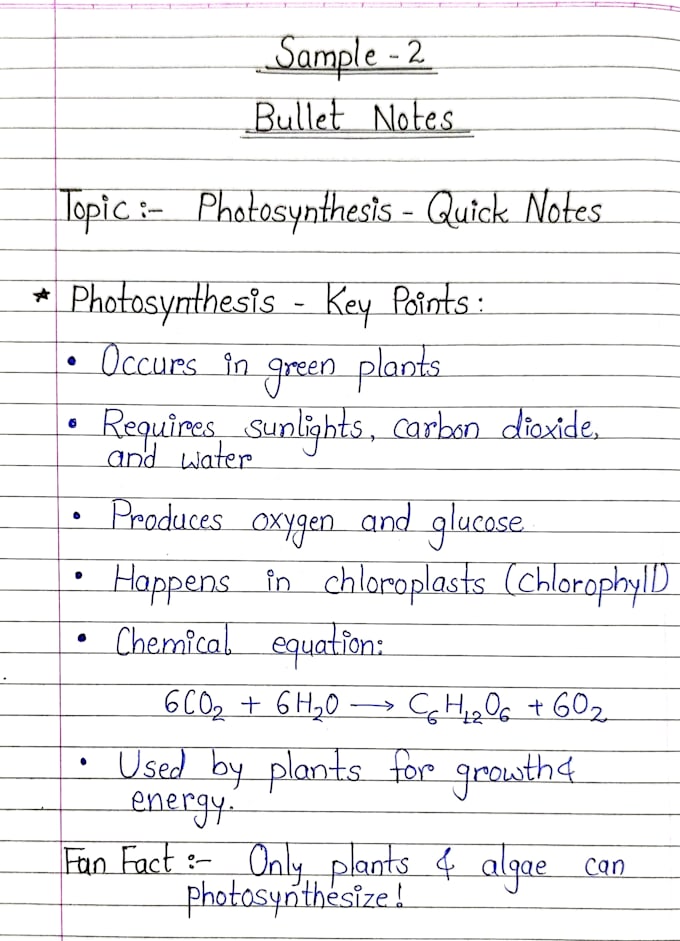 Sample - 2
Bullet Notes
Topic :- Photosynthesis - Quick Notes
* Photosynthesis - Key Points :
• Occurs in green plants
• Requires sunlights, carbon dioxide,
and water
• Produces oxygen and glucose
• Happens in chloroplasts (chlorophyll)
• Chemical equation:
6CO₂ + 6H₂O → C₆H₁₂O₆ + 6O₂
• Used by plants for growth &
energy.
Fan Fact :- Only plants & algae can
photosynthesize!